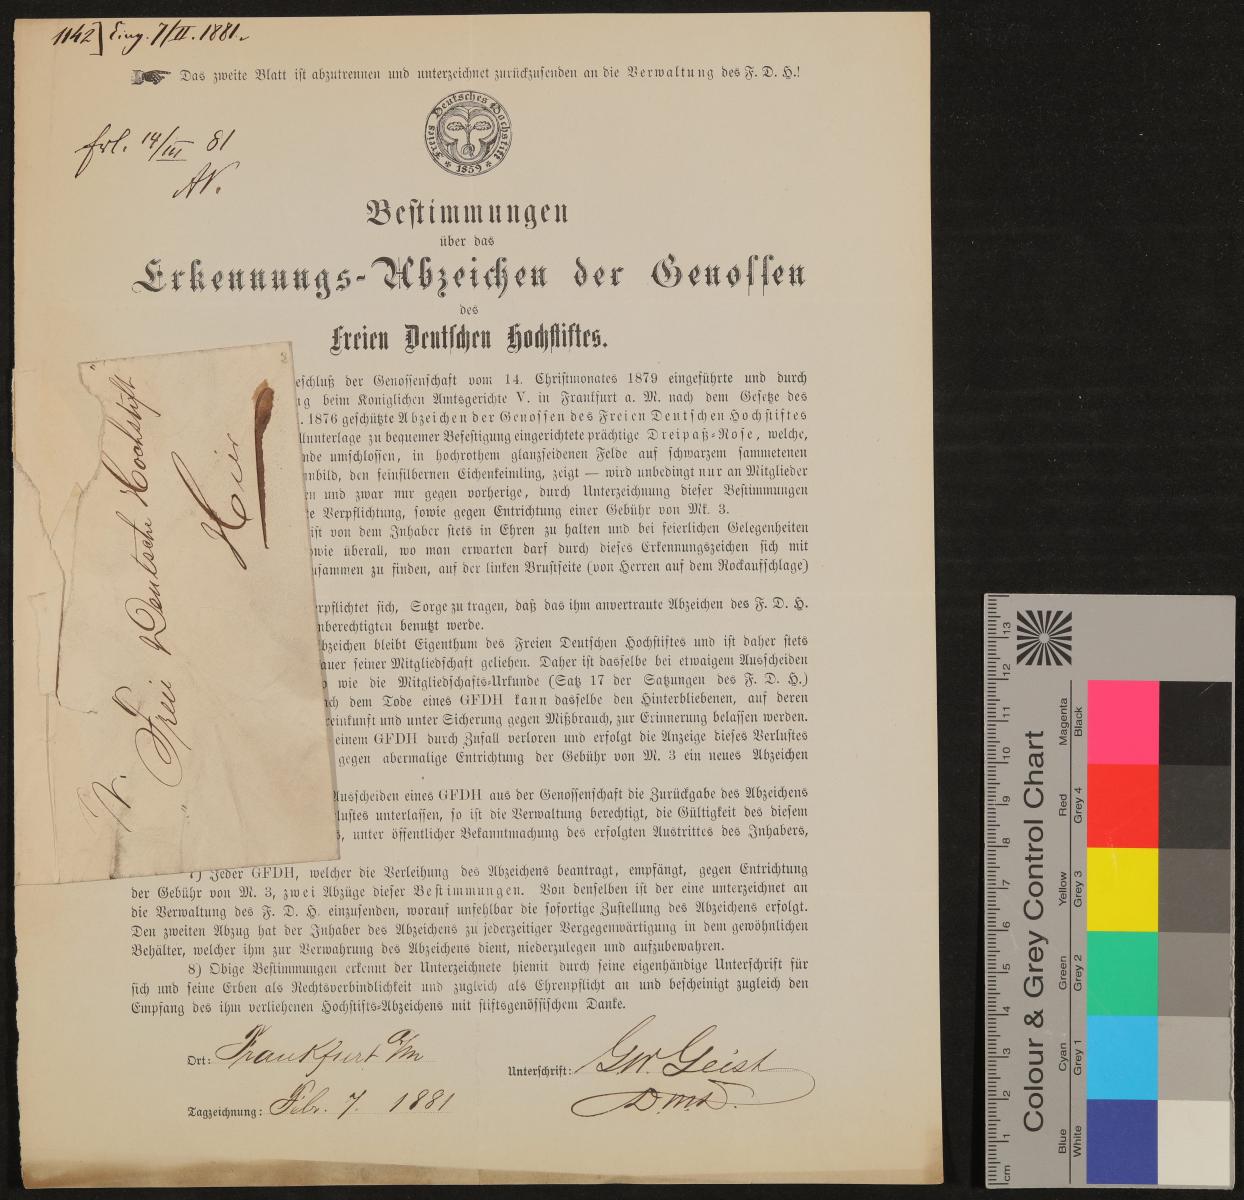 1142] Eing. 7/II. 1881.
Das zweite Blatt ist abzutrennen und unterzeichnet zurückzusenden an die Verwaltung des F. D. H.!
Freies Deutsches Hochstift
* 1859 *
erl. 14/III 81
Bestimmungen
über das
Erkennungs-Abzeichen der Genossen
des
Freien Deutschen Hochstiftes.
eschluß der Genossenschaft vom 14. Christmonates 1879 eingeführte und durch
ng beim Königlichen Amtsgerichte V. in Frankfurt a. M. nach dem Gesetze des
. 1876 geschützte Abzeichen der Genossen des Freien Deutschen Hochstiftes
lunterlage zu bequemer Befestigung eingerichtete prächtige Dreipaß-Rose, welche,
nde umschlossen, in hochrothem glanzseidenen Felde auf schwarzem sammetenen
nnbild, den feinsilbernen Eichenkeimling, zeigt — wird unbedingt nur an Mitglieder
en und zwar nur gegen vorherige, durch Unterzeichnung dieser Bestimmungen
te Verpflichtung, sowie gegen Entrichtung einer Gebühr von Mk. 3.
ist von dem Inhaber stets in Ehren zu halten und bei feierlichen Gelegenheiten
owie überall, wo man erwarten darf durch dieses Erkennungszeichen sich mit
usammen zu finden, auf der linken Brustseite (von Herren auf dem Rockaufschlage)
erpflichtet sich, Sorge zu tragen, daß das ihm anvertraute Abzeichen des F. D. H.
nberechtigten benutzt werde.
bzeichen bleibt Eigenthum des Freien Deutschen Hochstiftes und ist daher stets
auer seiner Mitgliedschaft geliehen. Daher ist dasselbe bei etwaigem Ausscheiden
o wie die Mitgliedschafts-Urkunde (Satz 17 der Satzungen des F. D. H.)
ch dem Tode eines GFDH kann dasselbe den Hinterbliebenen, auf deren
reinkunft und unter Sicherung gegen Mißbrauch, zur Erinnerung belassen werden.
einem GFDH durch Zufall verloren und erfolgt die Anzeige dieses Verlustes
gegen abermalige Entrichtung der Gebühr von M. 3 ein neues Abzeichen
Ausscheiden eines GFDH aus der Genossenschaft die Zurückgabe des Abzeichens
lustes unterlassen, so ist die Verwaltung berechtigt, die Gültigkeit des diesem
s, unter öffentlicher Bekanntmachung des erfolgten Austrittes des Inhabers,
7) Jeder GFDH, welcher die Verleihung des Abzeichens beantragt, empfängt, gegen Entrichtung
der Gebühr von M. 3, zwei Abzüge dieser Bestimmungen. Von denselben ist der eine unterzeichnet an
die Verwaltung des F. D. H. einzusenden, worauf unfehlbar die sofortige Zustellung des Abzeichens erfolgt.
Den zweiten Abzug hat der Inhaber des Abzeichens zu jederzeitiger Vergegenwärtigung in dem gewöhnlichen
Behälter, welcher ihm zur Verwahrung des Abzeichens dient, niederzulegen und aufzubewahren.
8) Obige Bestimmungen erkennt der Unterzeichnete hiemit durch seine eigenhändige Unterschrift für
sich und seine Erben als Rechtsverbindlichkeit und zugleich als Ehrenpflicht an und bescheinigt zugleich den
Empfang des ihm verliehenen Hochstifts-Abzeichens mit stiftsgenössischem Danke.
Ort: Frankfurt a/m
Unterschrift: GW. Geist
DMD.
Tagzeichnung: Febr. 7. 1881
Frei Deutsche Hochstift
Hier
Colour & Grey Control Chart
Blue Cyan Green Yellow Red Magenta
White Grey 1 Grey 2 Grey 3 Grey 4 Black
cm 1 2 3 4 5 6 7 8 9 10 11 12 13